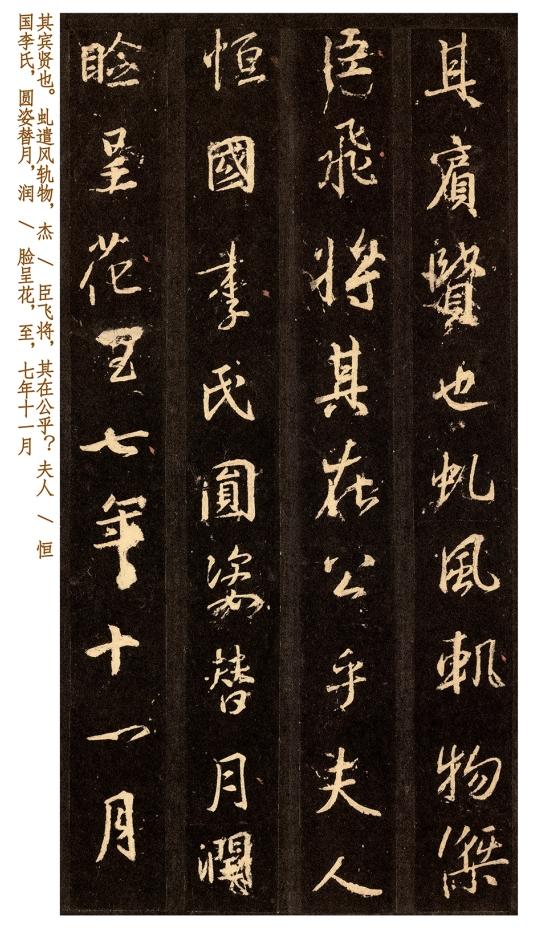 其賓賢也虬風軌物傑
臣飛將其在公乎夫人
恒國李氏圓姿替月潤
臉呈花至七年十一月
其宾贤也。虬遣风轨物，杰 / 臣飞将，其在公乎？夫人 / 恒
国李氏，圆姿替月，润 / 脸呈花，至，七年十一月